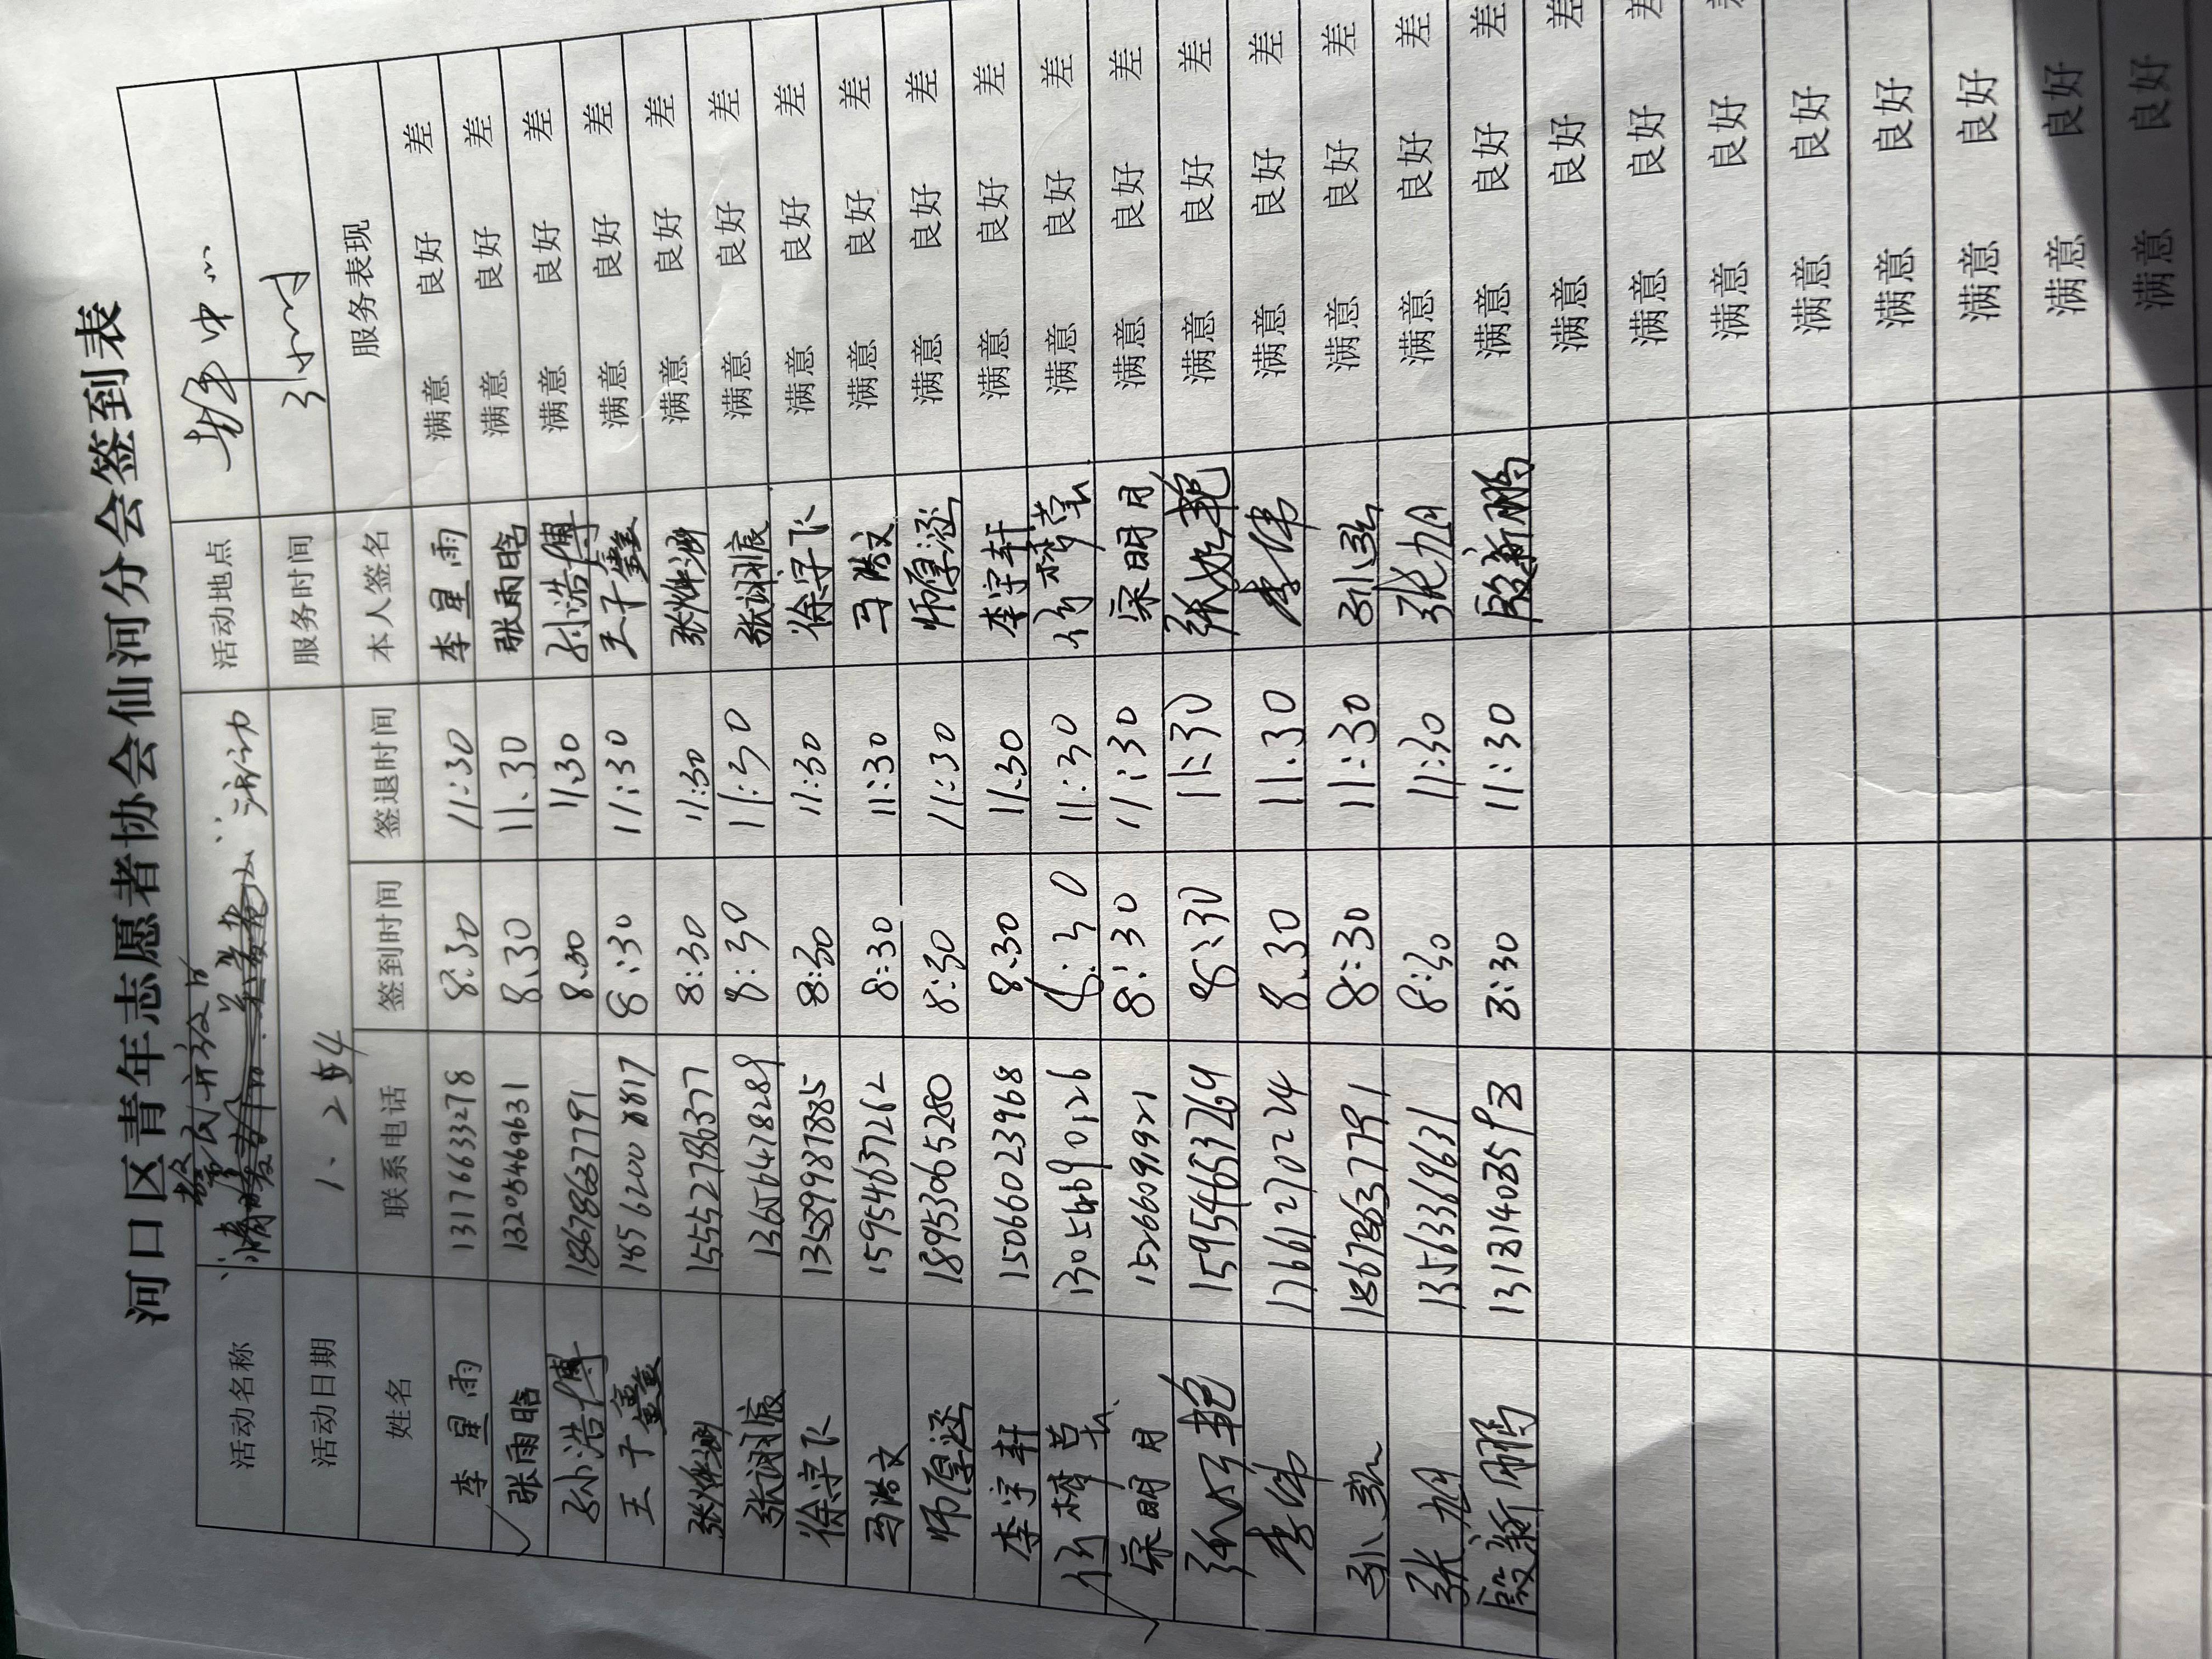 河口区青年志愿者协会仙河分会签到表
活动名称 牧民开放日 活动 活动地点
活动日期 服务时间 3小时
姓名 联系电话 签到时间 签退时间 本人签名 服务表现
李星雨 13176633278 8:30 11:30 李星雨 满意 良好 差
张雨晗 13205469631 8.30 11.30 张雨晗 满意 良好 差
孙浩博 18678637791 8.30 11.30 孙浩博 满意 良好 差
王子鑫 8:30 11:30 王子鑫 满意 良好 差
15552786377 8:30 11:30 满意 良好 差
13656478289 8:30 11:30 满意 良好 差
徐浮飞 13589987885 8:30 11:30 徐浮飞 满意 良好 差
马浩文 15954637262 8:30 11:30 马浩文 满意 良好 差
师厚涵 18953065280 8:30 11:30 师厚涵 满意 良好 差
李宇轩 15066023968 8:30 11:30 李宇轩 满意 良好 差
13054690126 8:30 11:30 满意 良好 差
宋明月 15266091921 8:30 11:30 宋明月 满意 良好 差
15954653269 8:30 11:30 满意 良好 差
李伟 17661270224 8.30 11.30 李伟 满意 良好 差
18678637791 8:30 11:30 满意 良好 差
张旭 13563369631 8:30 11:30 张旭 满意 良好 差
殷新鹏 8:30 11:30 殷新鹏 满意 良好 差
满意 良好 差
满意 良好 差
满意 良好
满意 良好
满意 良好
满意 良好
满意 良好
满意 良好